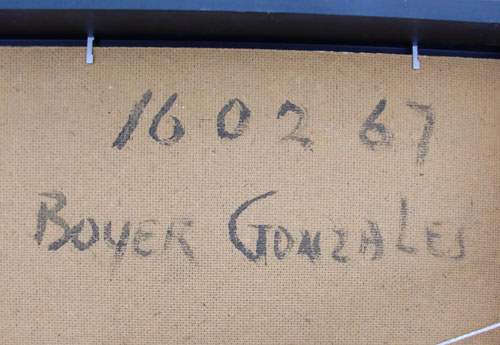 160267
BOYER GONZALES